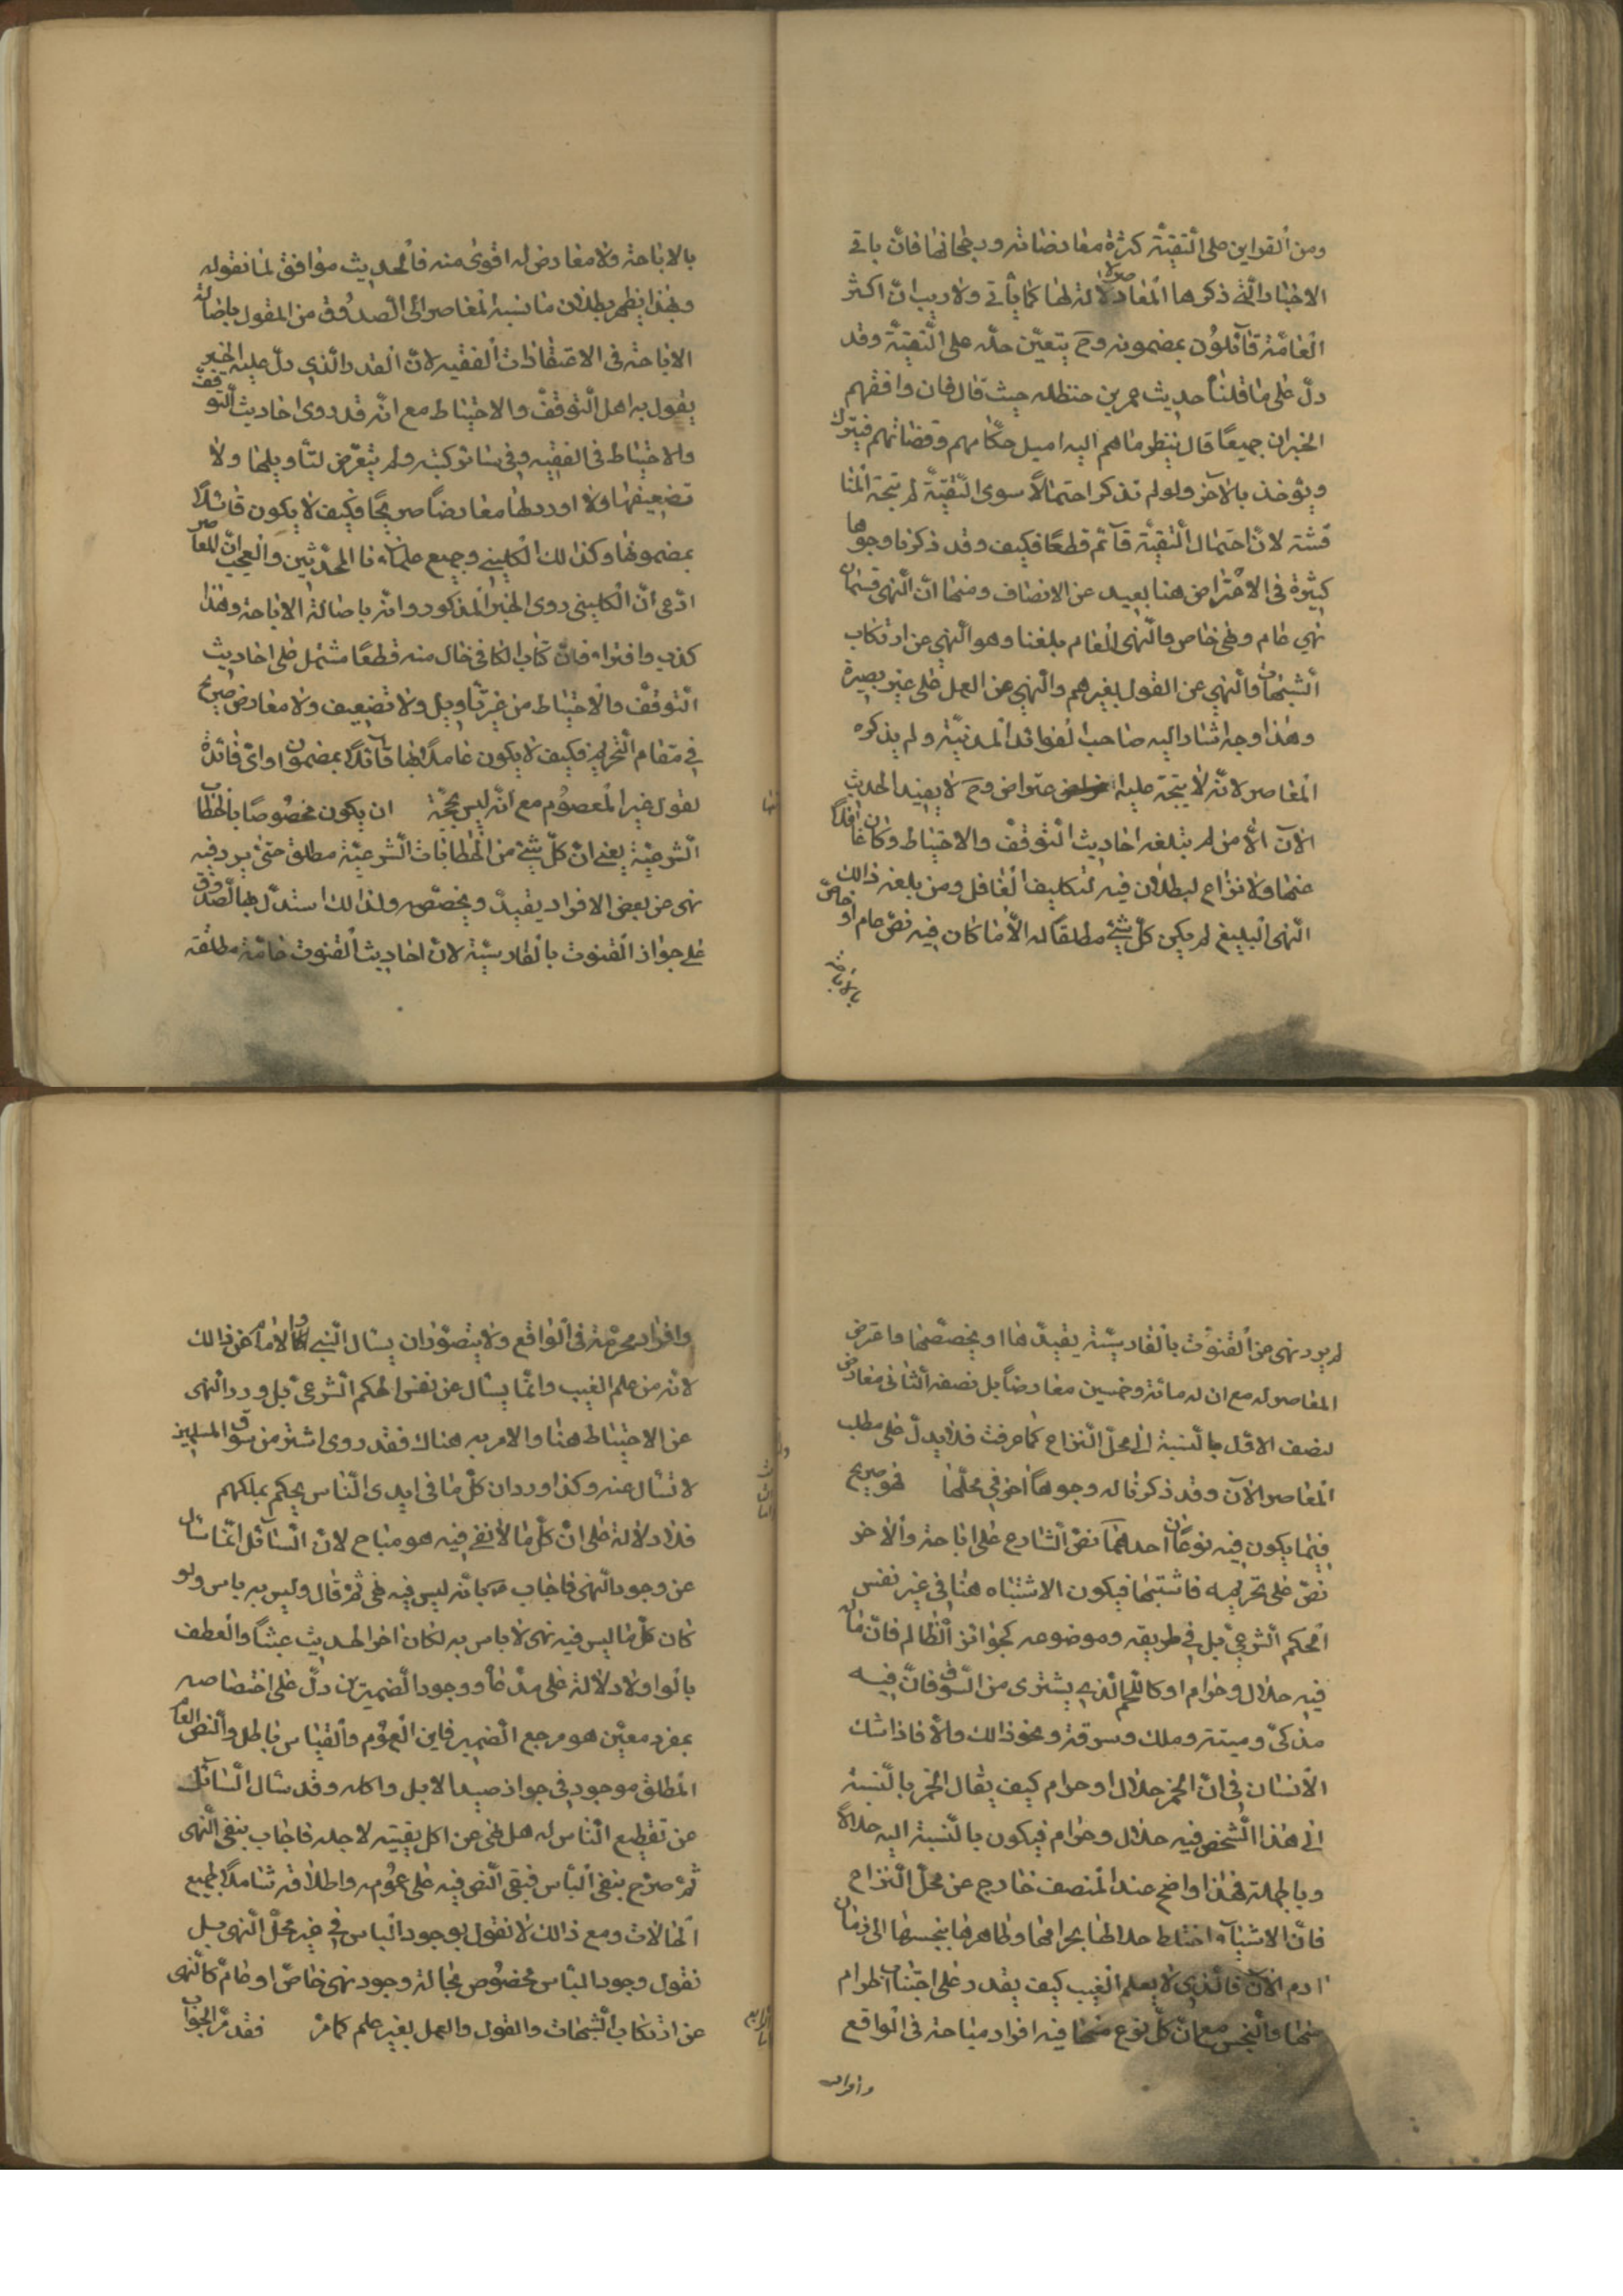 ومن القراين على التقيّة كثرة معارضاته ورجحانها فانّ باقى
الاخبار الّتى ذكرها المعاصر لا دلالة لها كما يأتى ولا ريب انّ اكثر
العامّة قائلون بمضمونه وح يتعيّن حمله على التقيّة وقد
دلّ على ما قلنا حديث عمر بن حنظله حيث قال فان وافقهم
الخبران جميعًا قال ينظر ما هم اليه اميل حكّامهم وقضاتهم فيترك
ويؤخذ بالآخر ولو لم نذكر احتمالاً سوى التّقيّة لم يتجه المنا
قشة لانّ احتمال التّقيّة قآئم قطعًا فكيف وقد ذكرنا وجوها
كثيرة فى الاعتراض هنا بعيد عن الانصاف ومنها انّ النّهى قسمان
نهي عام ونهى خاص والنّهى العام بلغنا وهو النّهي عن ارتكاب
الشّبهات والنّهي عن القول بغيرهم والنّهي عن العمل على غير بصيرة
وهذا وجه اشار اليه صاحب الفوائد المدنيّة ولم يذكره
المعاصر لانّه لا يتجه عليه اعتراض وح لا يفيد الحديث
الآن الّا من لم يتلغه احاديث التّوقّف والاحتياط وكان غافلًا
عنها ولا نزاع لبطلان فيه لتكليف الغافل ومن بلغه ذالك
النّهى البليغ لم يكن كلّ شئ مطلقا له الّا ما كان فيه نصّ عام او خاصّ
بالاباحة
بالاباحة ولا معارض له اقوى منه فالحديث موافق لما نقوله
وبهذا يظهر بطلان ما نسبه المعاصر الى الصّدوق من القول باصالة
الاباحة فى الاعتقادات الفقيه لانّ القدر الّذي دلّ عليه الخبر
يقول به اهل التّوقّف والاحتياط مع انّه قد روى احاديث التّوقّف
والاحتياط فى الفقيه وفى سائر كتبه ولم يتعرّض لتأويلها ولا
تضعيفها ولا اورد لها معارضًا صريحًا فكيف لا يكون قائلًا
بمضمونها وكذالك الكلينى وجميع علمآءنا المحدّثين والعجب انّ المعاصر
ادّعى انّ الكلينى روى الخبر المذكور وانّه باصالة الاباحة وهذا
كذب وافتراء فانّ كتاب الكافى خال منه قطعًا مشتمل على احاديث
التّوقّف والاحتياط من غير تأويل ولا تضعيف ولا معارض صريح
فى مقام التّحريم فكيف لا يكون عاملًا بها قآئلًا بمضمونها واىّ فائدة
لقول غير المعصوم مع انّه ليس بحجّة ان يكون مخصوصًا بالخطاب
الشّرعيّة يعنى انّ كلّ شئ من الخطابات الشّرعيّة مطلق حتّى يرد فيه
نهى عن بعض الافراد يقيّد ويخصّصه ولذالك استدلّ بها الصّدوق
على جواز القنوت بالفارسيّة لانّ احاديث القنوت عامّة مطلقة
لم يرد نهى عن القنوت بالفارسيّة يقيّدها او يخصّصها واعترض
المعاصر له مع ان له مائة وخمسين معارضاً بل نصفه الثّانى معارض
لنصف الاوّل بالنّسبة الى محلّ النّزاع كما عرفت فلا يدلّ على مطلب
المعاصر الآن وقد ذكرنا له وجوهًا اخر فى محلّها فهو صريح
فيما يكون فيه نوعان احدهما نصّ الشّارع على اباحته والاخر
نصّ على تحريمه فاشتبها فيكون الاشتباه هنا فى غير نفس
الحكم الشّرعىّ بل فى طريقه وموضوعه كجوائز الظّالم فانّ ماله
فيه حلال وحرام او كاللّحم الّذى يشترى من السّوق فانّ فيه
مذكّى وميتة وملك وسرقة ونحو ذالك والّا فاذا شك
الانسان فى انّ الخمر حلال او حرام كيف يقال الخمر بالنّسبة
الى هذا الشّخص فيه حلال وحرام فيكون بالنّسبة اليه حلالاً
وبالجملة فهذا واضح عند المنصف خارج عن محلّ النّزاع
فانّ الاشيآء اختلط حلالها بحرامها وطاهرها بنجسها الى زمان
ادم الآن فالّذى لا يعلم الغيب كيف يقدر على اجتناب الحرام
منها والنّجس مع انّ كلّ نوع منها فيه افراد مباحة فى الواقع
وافراد
وافراد محرّمة فى الواقع ولا يتصوّر ان يسال النّبى والامام عن ذالك
لانّه من علم الغيب وانّما يسأل عن نفس الحكم الشّرعىّ بل ورد النّهى
عن الاحتياط هنا والامر به هناك فقد روى اشتر من سوق المسلمين
لا تسأل عنه وكذا ورد ان كلّ ما فى ايدى النّاس يحكم بملكهم
فلا دلالة على انّ كلّ ما لا نهى فيه هو مباح لانّ السّآئل انّما سأل
عن وجود النّهى فاجاب بانّه ليس فيه نهى ثمّ قال وليس به باس ولو
كان كلّ ما ليس فيه نهى لا باس به لكان اخر الحديث عبثًا والعطف
بالواو لا دلالة على مدّعاه ووجود الضّميرين دلّ على اختصاصه
بمفرد معيّن هو مرجع الضّمير فاين العموم والقياس باطل والنّصّ العام
المطلق موجود فى جواز صيد الابل واكله وقد سأل السّآئل
عن تقطيع النّاس له هل نهى عن اكل بقيّته لاجله فاجاب بنفى النّهى
ثمّ صرّح بنفى البأس فبقى النّص فيه على عمومه واطلاقه شاملًا لجميع
الحالات ومع ذالك لا نقول بوجود الباس فى غير محلّ النّهى بل
نقول وجود البأس مخصوص بحالة وجود نهى خاصّ او عامّ كالنّهى
عن ارتكاب الشّبهات والقول والعمل بغير علم كما مرّ فقد مرّ الجواب